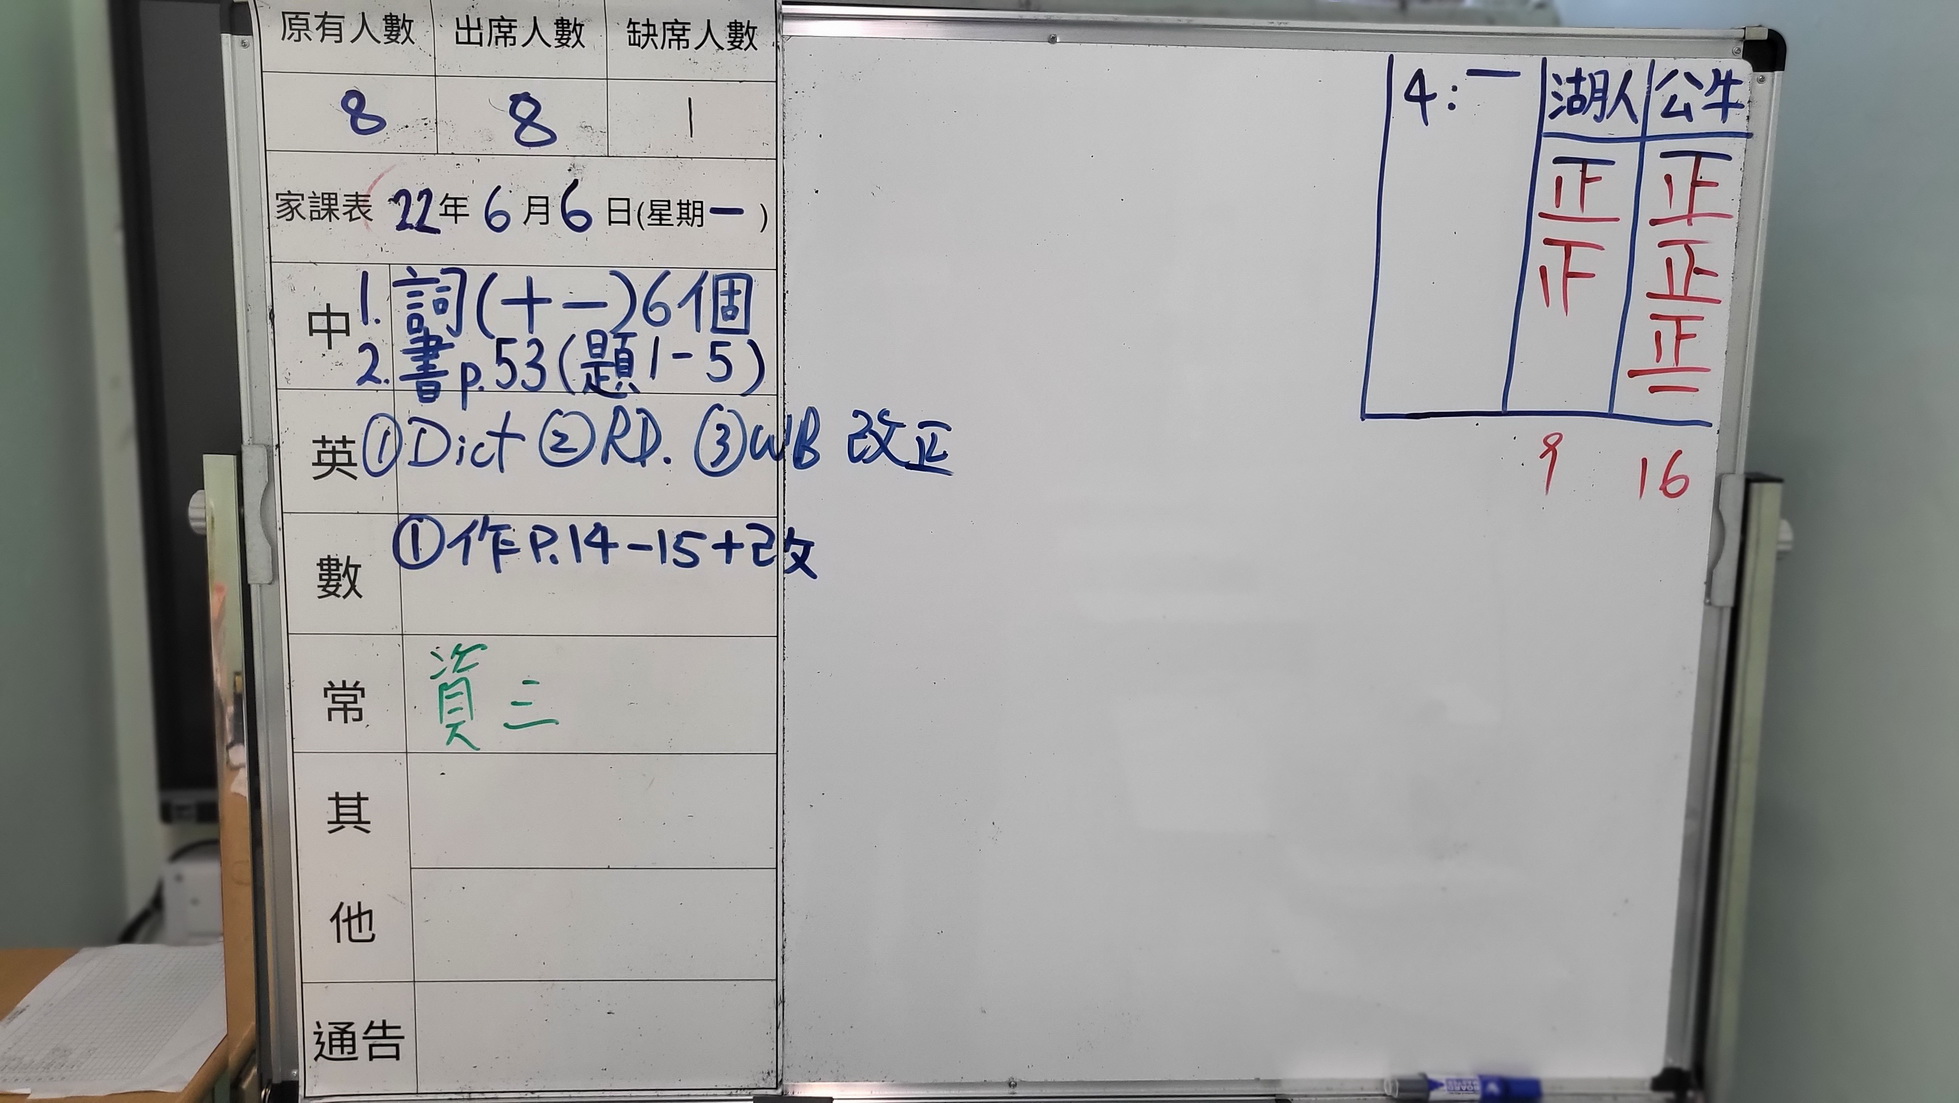 原有人數 出席人數 缺席人數
8 8 1
家課表 22年6月6日(星期一)
中 1. 詞(十一)6個
2. 書p.53(題1-5)
英 ①Dict ②RD. ③WB 改正
數 ①作P.14-15+改
常 資三
其
他
通告
4:一 湖人 公牛
正 正
正 正
正
一
9 16